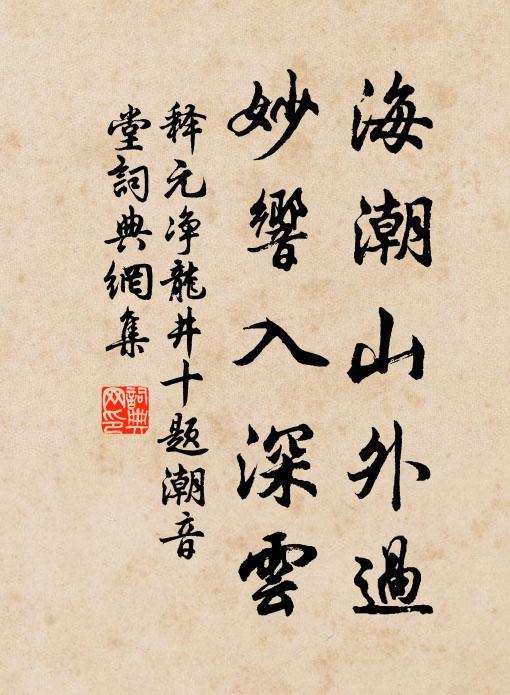 海潮山外過
妙響入深雲
释元净龍井十题潮音
堂詞典網集
詞典
网印